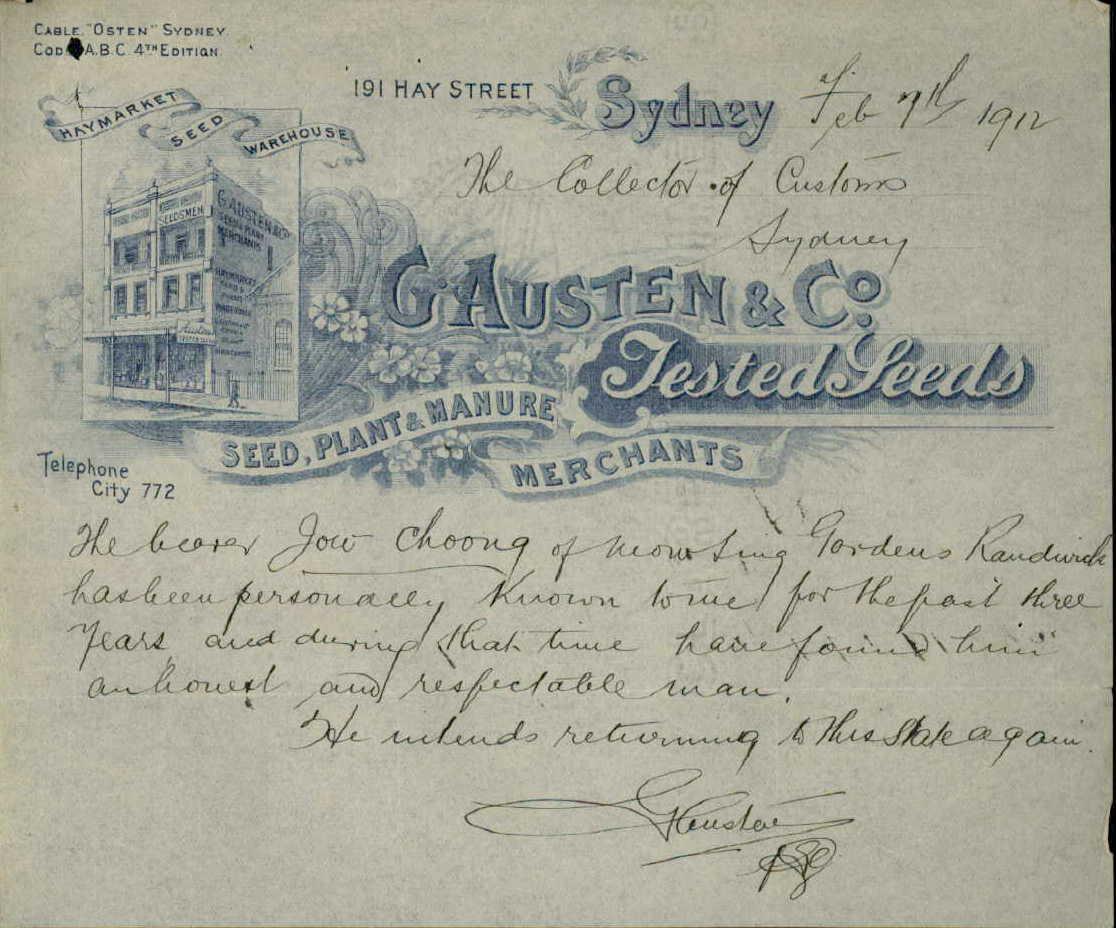 CABLE. "OSTEN" SYDNEY.
CODE A.B.C. 4TH EDITION.
191 HAY STREET Sydney Feb 7th 1912
HAYMARKET SEED WAREHOUSE
The Collector of Customs
Sydney
SEEDSMEN
G. AUSTEN & Co
SEED & PLANT
MERCHANTS
G. AUSTEN & Co.
Tested Seeds
SEED, PLANT & MANURE
MERCHANTS
Telephone
City 772
The bearer Jow Choong of Sing Gardens Randwick
has been personally known to me for the past three
years and during that time have found him
an honest and respectable man.
He intends returning to this State again.
G Austen